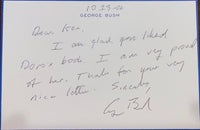 10-23-06
GEORGE BUSH
Dear Ken,
I am glad you liked
Doro's book. I am very proud
of her. Thanks for your very
nice letter. Sincerely,
G Bush